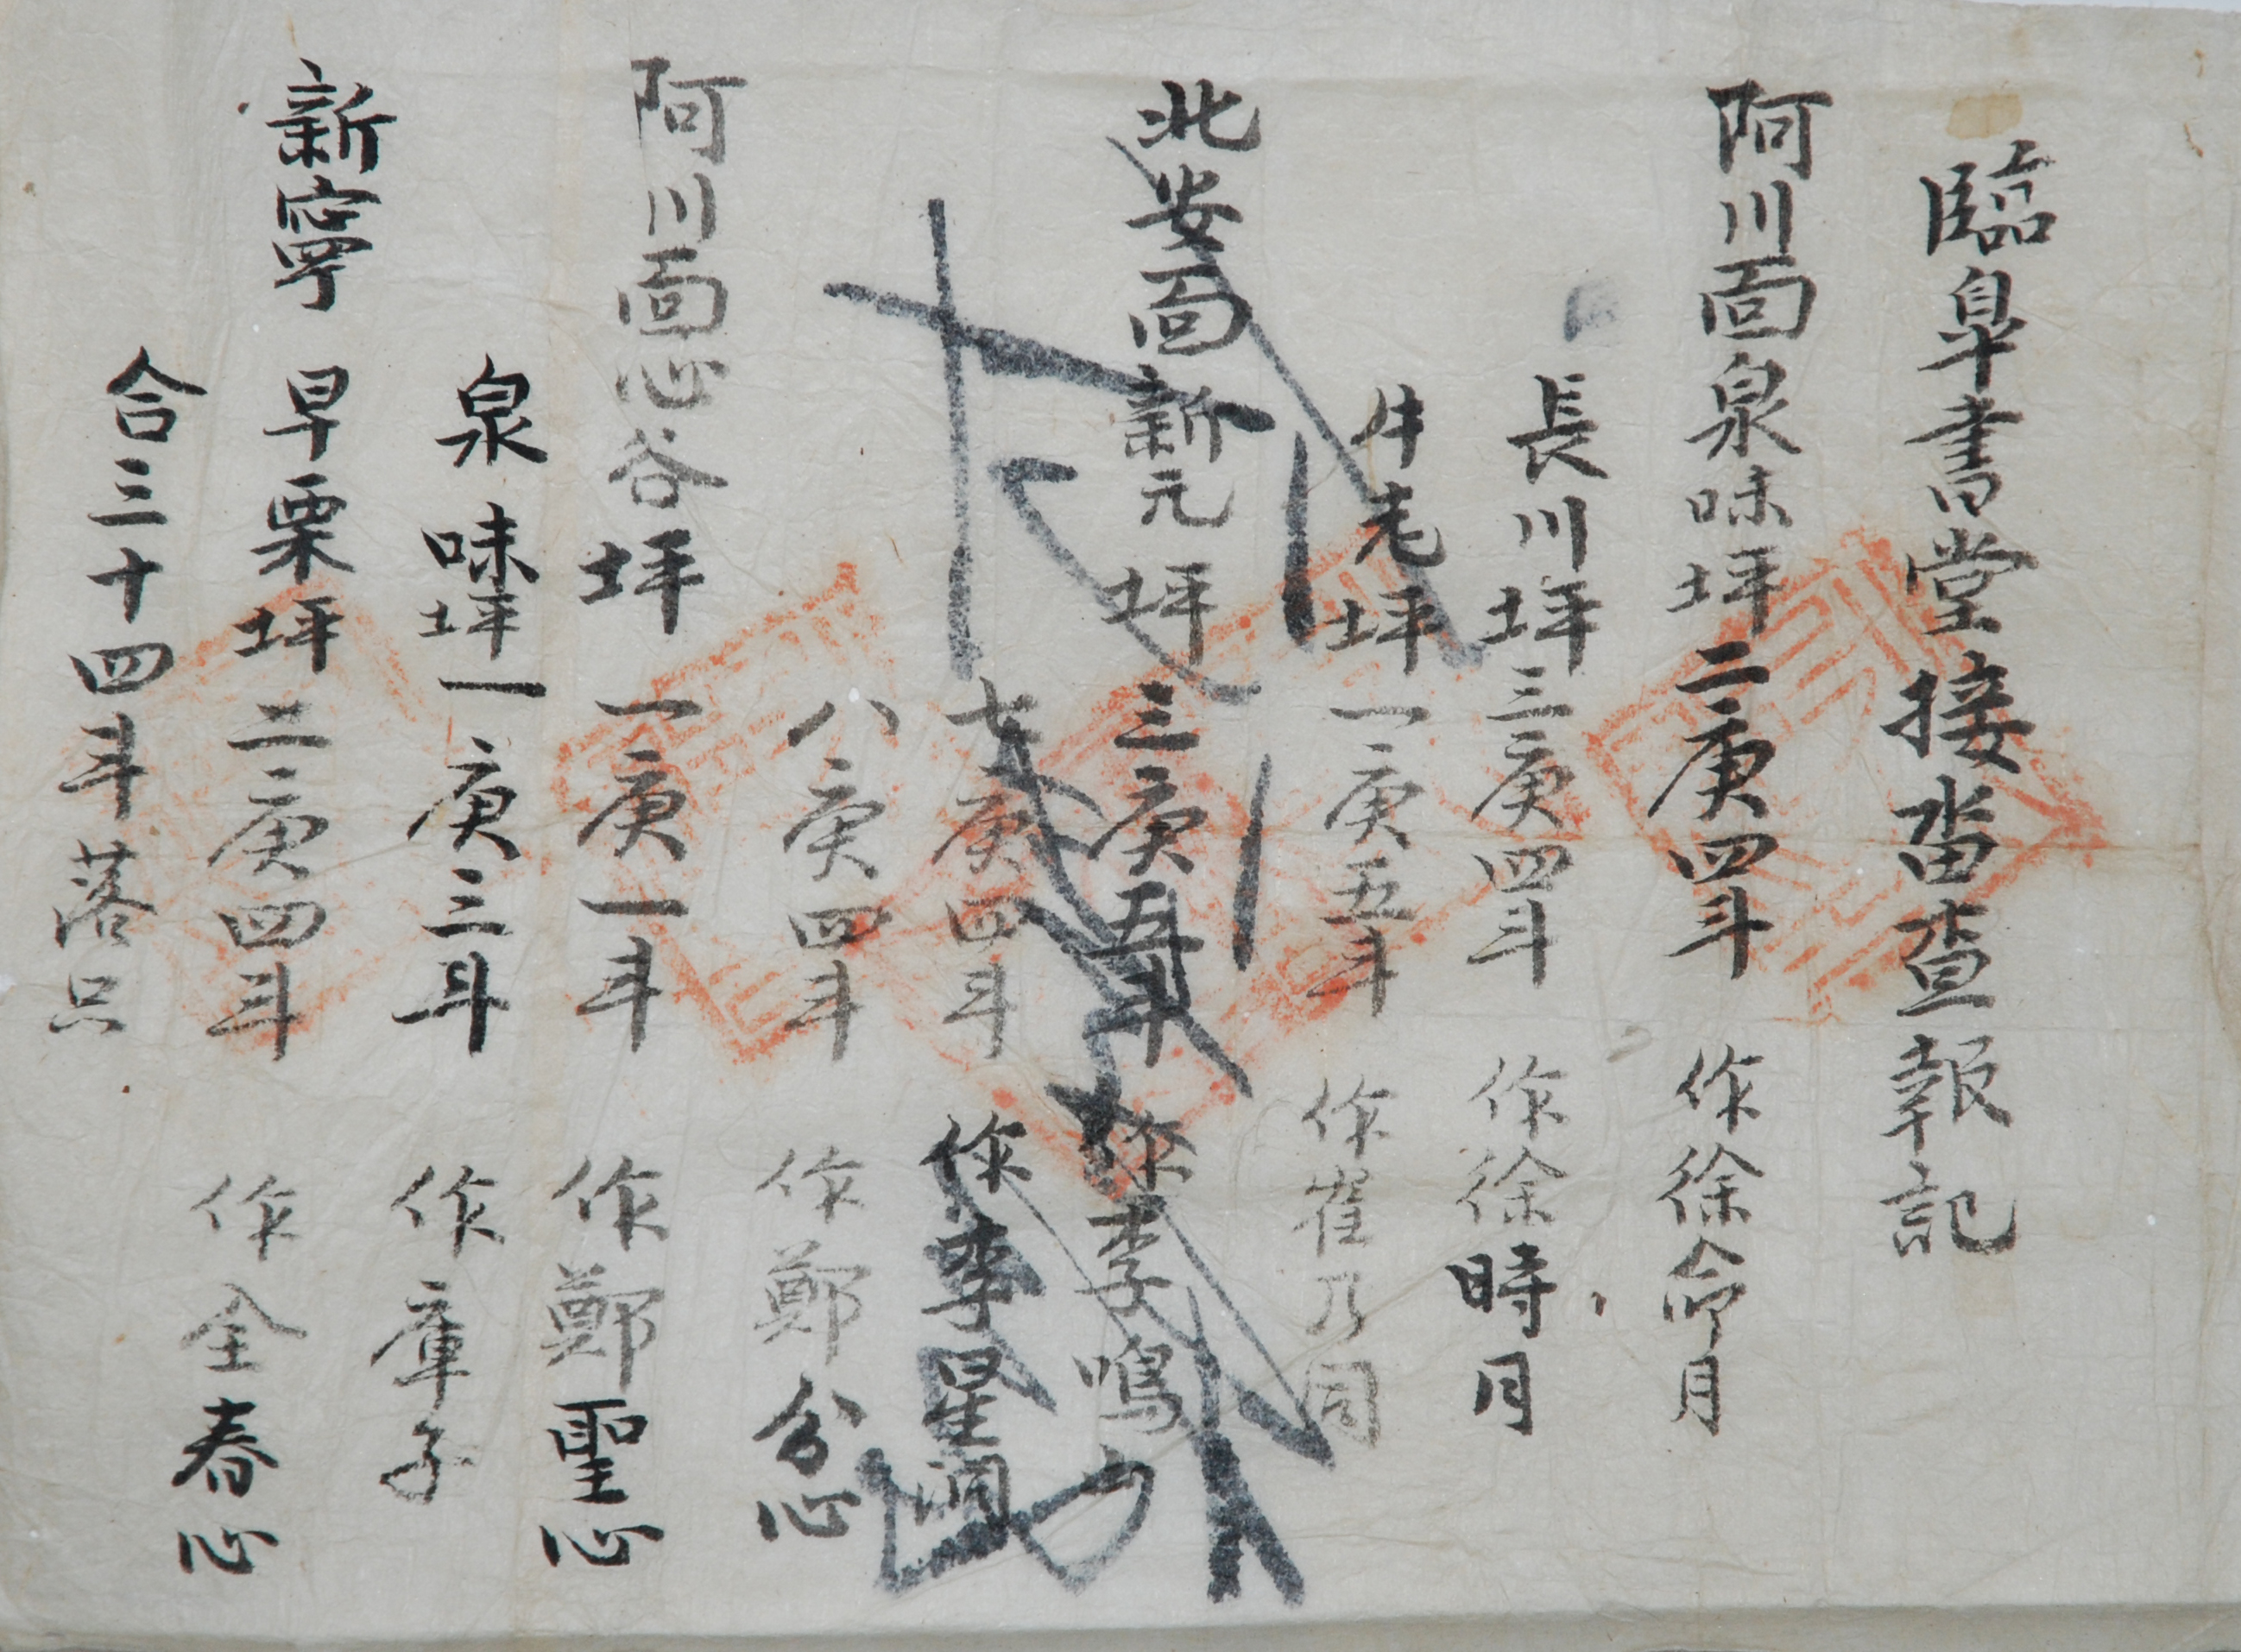 臨皐書堂接畓查報記
阿川面泉味坪二庚四斗 作徐命月
長川坪三庚四斗 作徐時月
牛老坪一庚五斗 作崔乃同
北安面新元坪三庚五斗 作李鳴
七庚四斗 作李星洞
八庚四斗 作鄭分心
阿川面心谷坪一庚一斗 作鄭聖心
泉味坪一庚三斗 作庫子
新寧 早栗坪二庚四斗 作金春心
合三十四斗落只